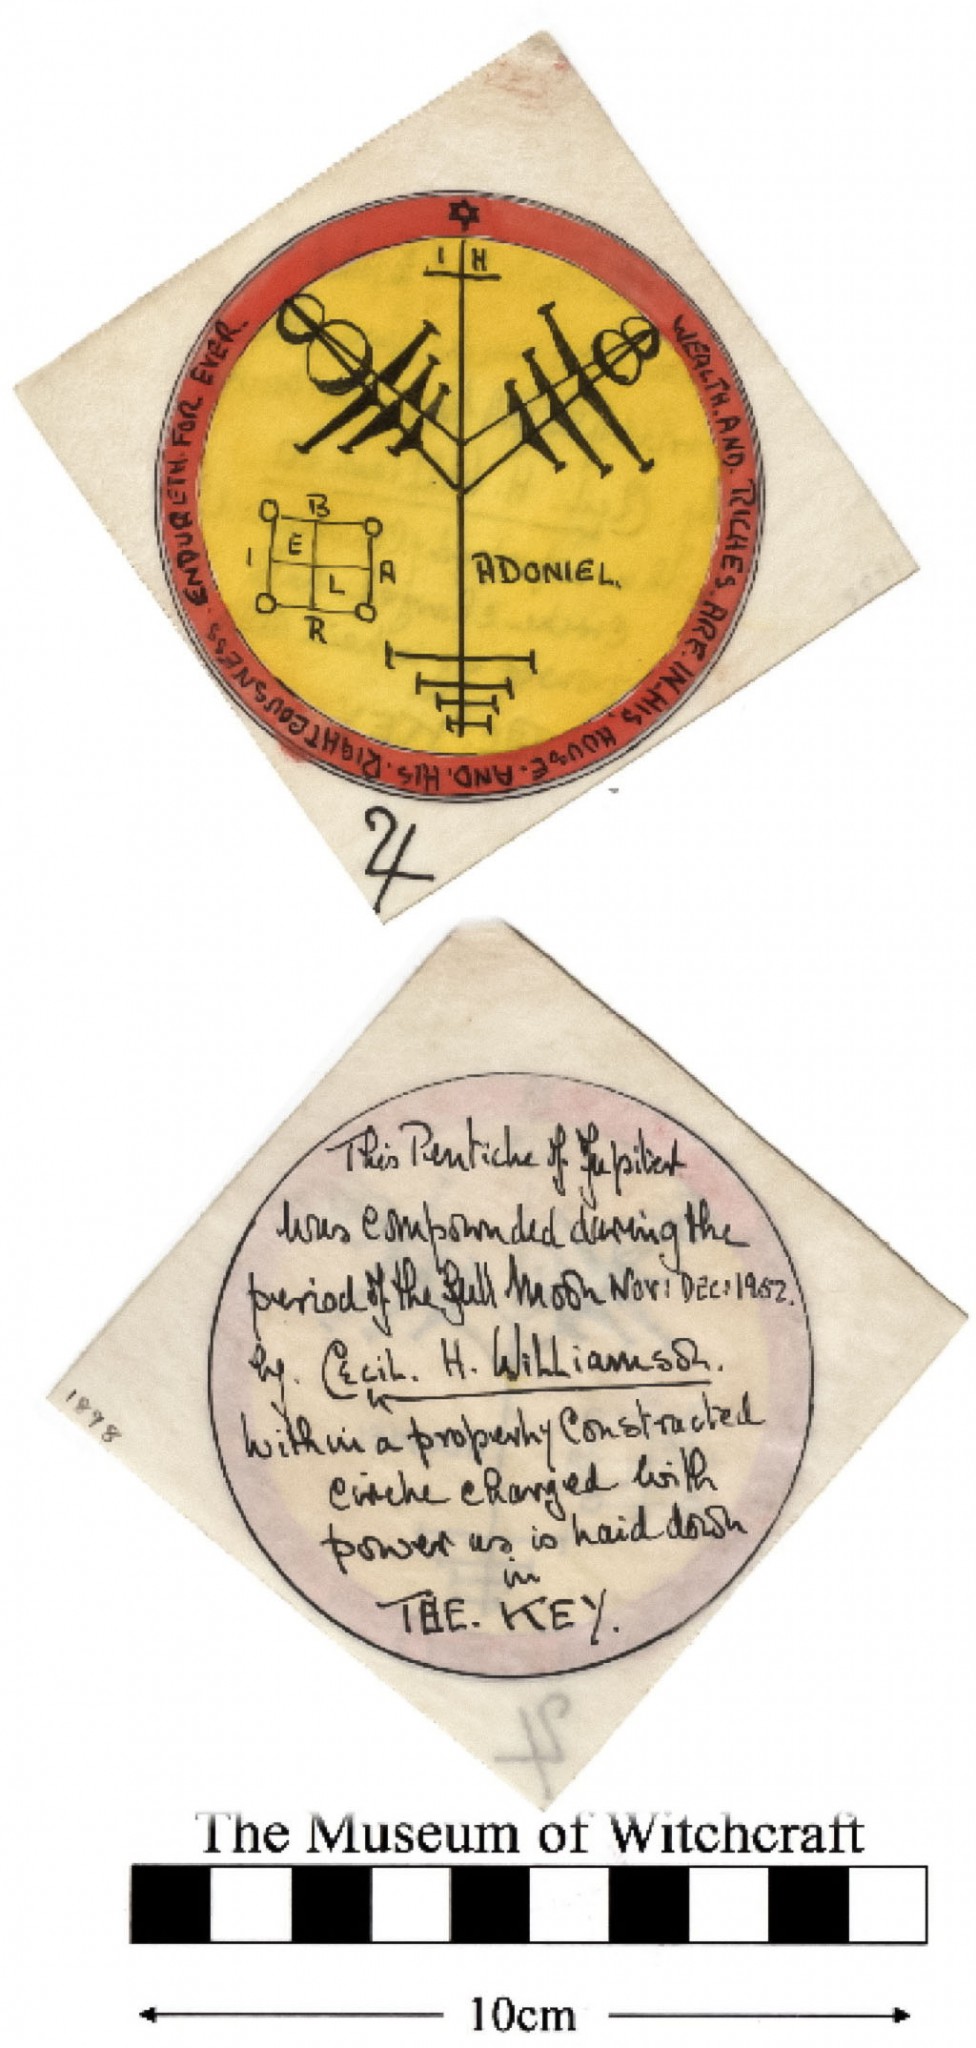 I H
WEALTH. AND. RICHES. ARE. IN. HIS. HOUSE. AND. HIS. RIGHTEOUSNESS. ENDURETH. FOR EVER.
B
E
I A
L
R
ADONIEL.
This Penticle of Jupiter
was compounded during the
period of the full Moon NOV: DEC: 1952.
by. Cecil. H. Williamson.
within a properly Constructed
circle charged with
power as is laid down
in
THE. KEY.
1898
The Museum of Witchcraft
10cm